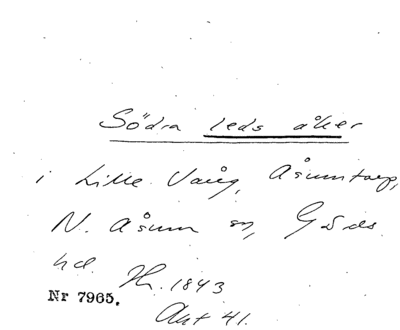 Södra leds åker
i Lille Vång, Åsumtorp,
N. Åsum sn, Gärds
hd. Hr. 1843
Nr 7965. Akt 41.